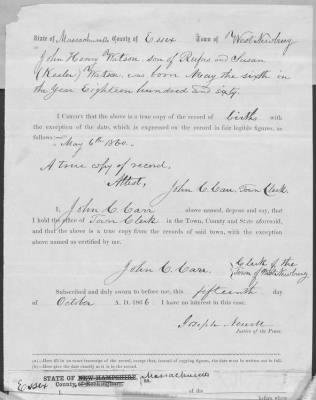 State of Massachusetts County of Essex Town of West Newbury
John Henry Watson, son of Rufus and Susan
(Kesler) Watson was born May the sixth in
the Year Eighteen hundred and sixty.
I CERTIFY that the above is a true copy of the record of births with
the exception of the date, which is expressed on the record in fair legible figures, as
follows:
May 6th 1860.
A true copy of record.
Attest,
John C. Carr Town Clerk.
I, John C. Carr above named, depose and say, that
I hold the office of Town Clerk in the Town, County and State aforesaid,
and that the above is a true copy from the records of said town, with the exception
above named as certified by me.
John C. Carr. Clerk of the
Town of West Newbury
Subscribed and duly sworn to before me, this fifteenth day
of October A. D. 1866 I have no interest in this case.
Joseph Newell
Justice of the Peace.
(a)—Here fill in an exact transcript of the record, except that, instead of copying figures, the date must be written out in full.
(b)—Here give the date exactly as it is in the record.
STATE OF NEW HAMPSHIRE, Massachusetts
Essex County, of Rockingham, ss.
of the